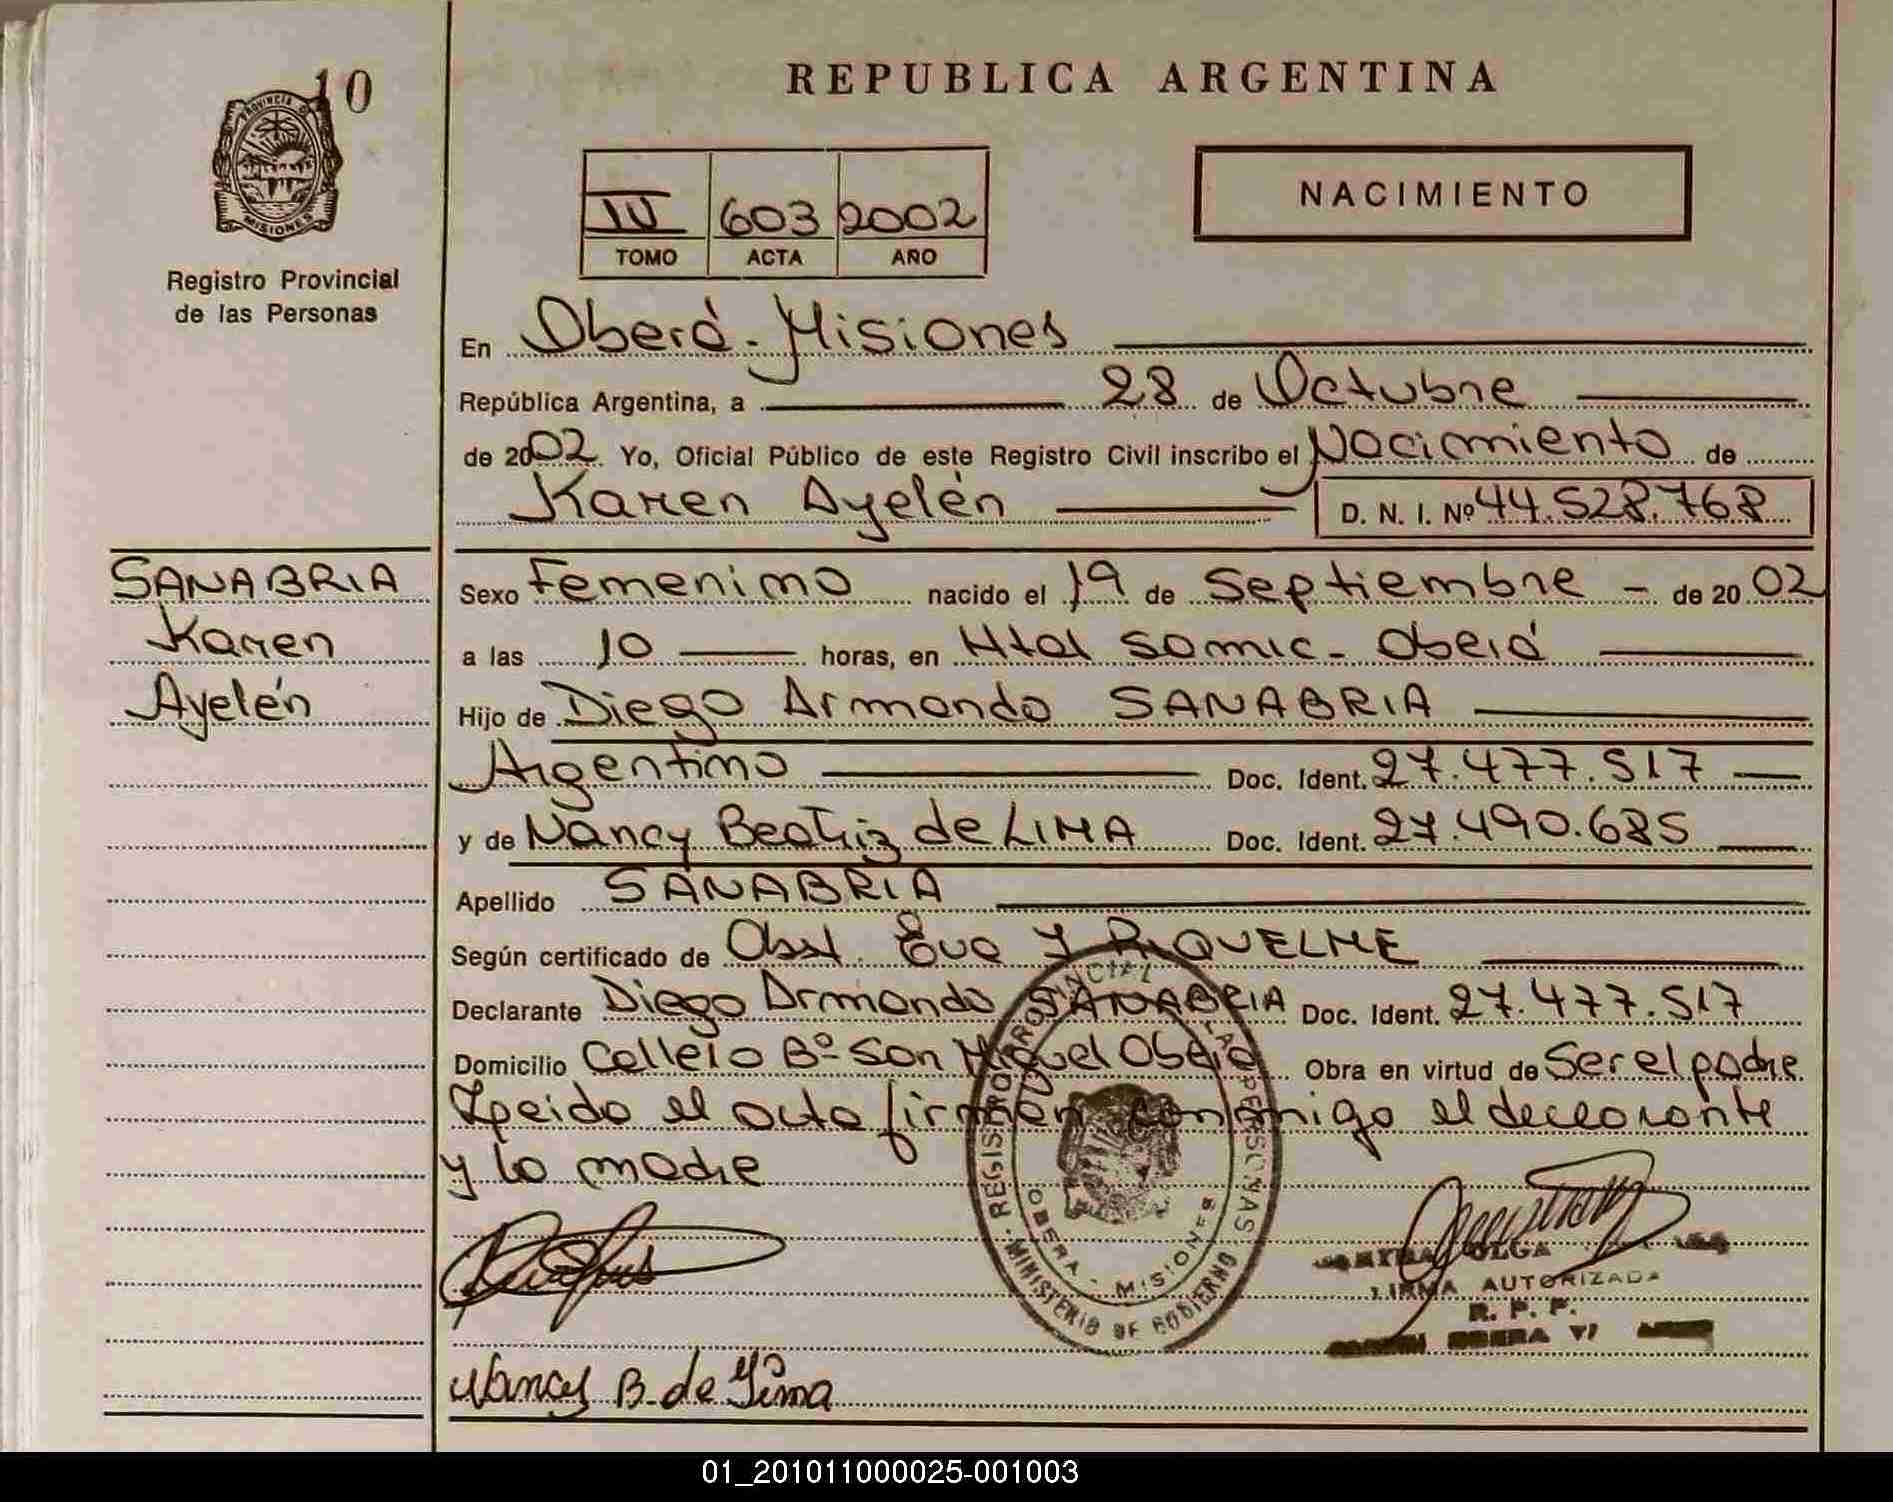 10
PROVINCIA DE
MISIONES
Registro Provincial
de las Personas
REPUBLICA ARGENTINA
IV 603 2002
TOMO ACTA AÑO
NACIMIENTO
En Oberá - Misiones
República Argentina, a 28 de Octubre
de 2002. Yo, Oficial Público de este Registro Civil inscribo el Nacimiento de
Karen Ayelén D. N. I. Nº 44.528.768
SANABRIA
Karen
Ayelén
Sexo Femenino nacido el 19 de Septiembre - de 20 02
a las 10 horas, en Htal Samic - Oberá
Hijo de Diego Armando SANABRIA
Argentino Doc. Ident. 27.477.517
y de Nancy Beatriz de LIMA Doc. Ident. 27.490.685
Apellido SANABRIA
Según certificado de Obst. Eva Y RIQUELME
Declarante Diego Armando SANABRIA Doc. Ident. 27.477.517
Domicilio Bº San Miguel Oberá Obra en virtud de Ser el padre
Leido el acta firman conmigo el declarante
y la madre
REGISTRO PROVINCIAL DE LAS PERSONAS
OBERA - MISIONES
MINISTERIO DE GOBIERNO
OLGA
FIRMA AUTORIZADA
R. P. P.
Nancy B. de Lima
01_201011000025-001003